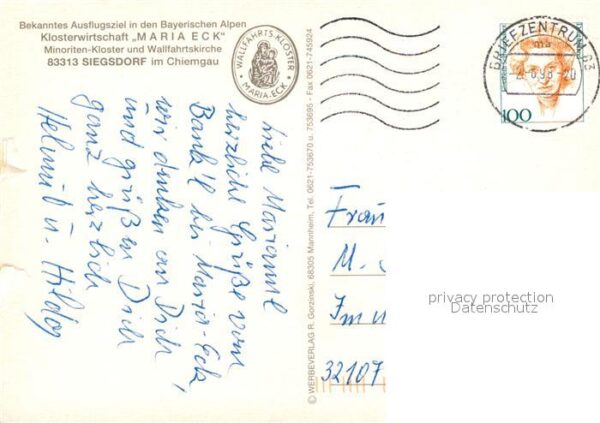 Bekanntes Ausflugsziel in den Bayerischen Alpen
Klosterwirtschaft „MARIA ECK"
Minoriten-Kloster und Wallfahrtskirche
83313 SIEGSDORF im Chiemgau
WALLFAHRTS-KLOSTER
MARIA-ECK
Liebe Marianne
herzliche Grüße vom
Bank'l bei Maria-Eck,
wir denken an Dich
und grüßen Dich
ganz herzlich
Helmut u. Hilde
© WERBEVERLAG R. Gorzinski, 68305 Mannheim, Tel. 0621-753670 u. 753695 - Fax 0621-745924
BRIEFZENTRUM 83
100
Frau
M.
Im
32107
privacy protection
Datenschutz